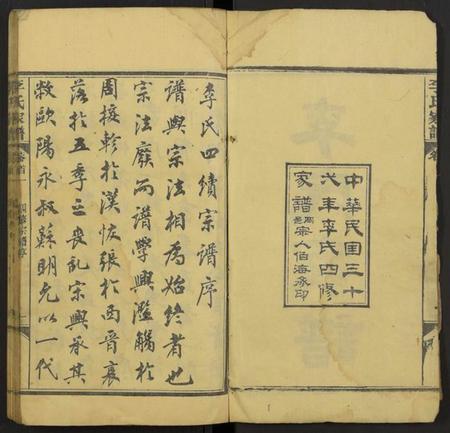 李氏家譜 卷
中華民國三十
弍年李氏四修
家譜同邑宗人伯海承印
李氏四續宗譜序
譜與宗法相為始終者也
宗法廢而譜學興濫觴於
周接軫於漢恢張於西晉衰
落於五季之喪亂宋興承其
敝歐陽永叔蘇明允以一代
李氏家譜 卷首 四續宗譜序 一